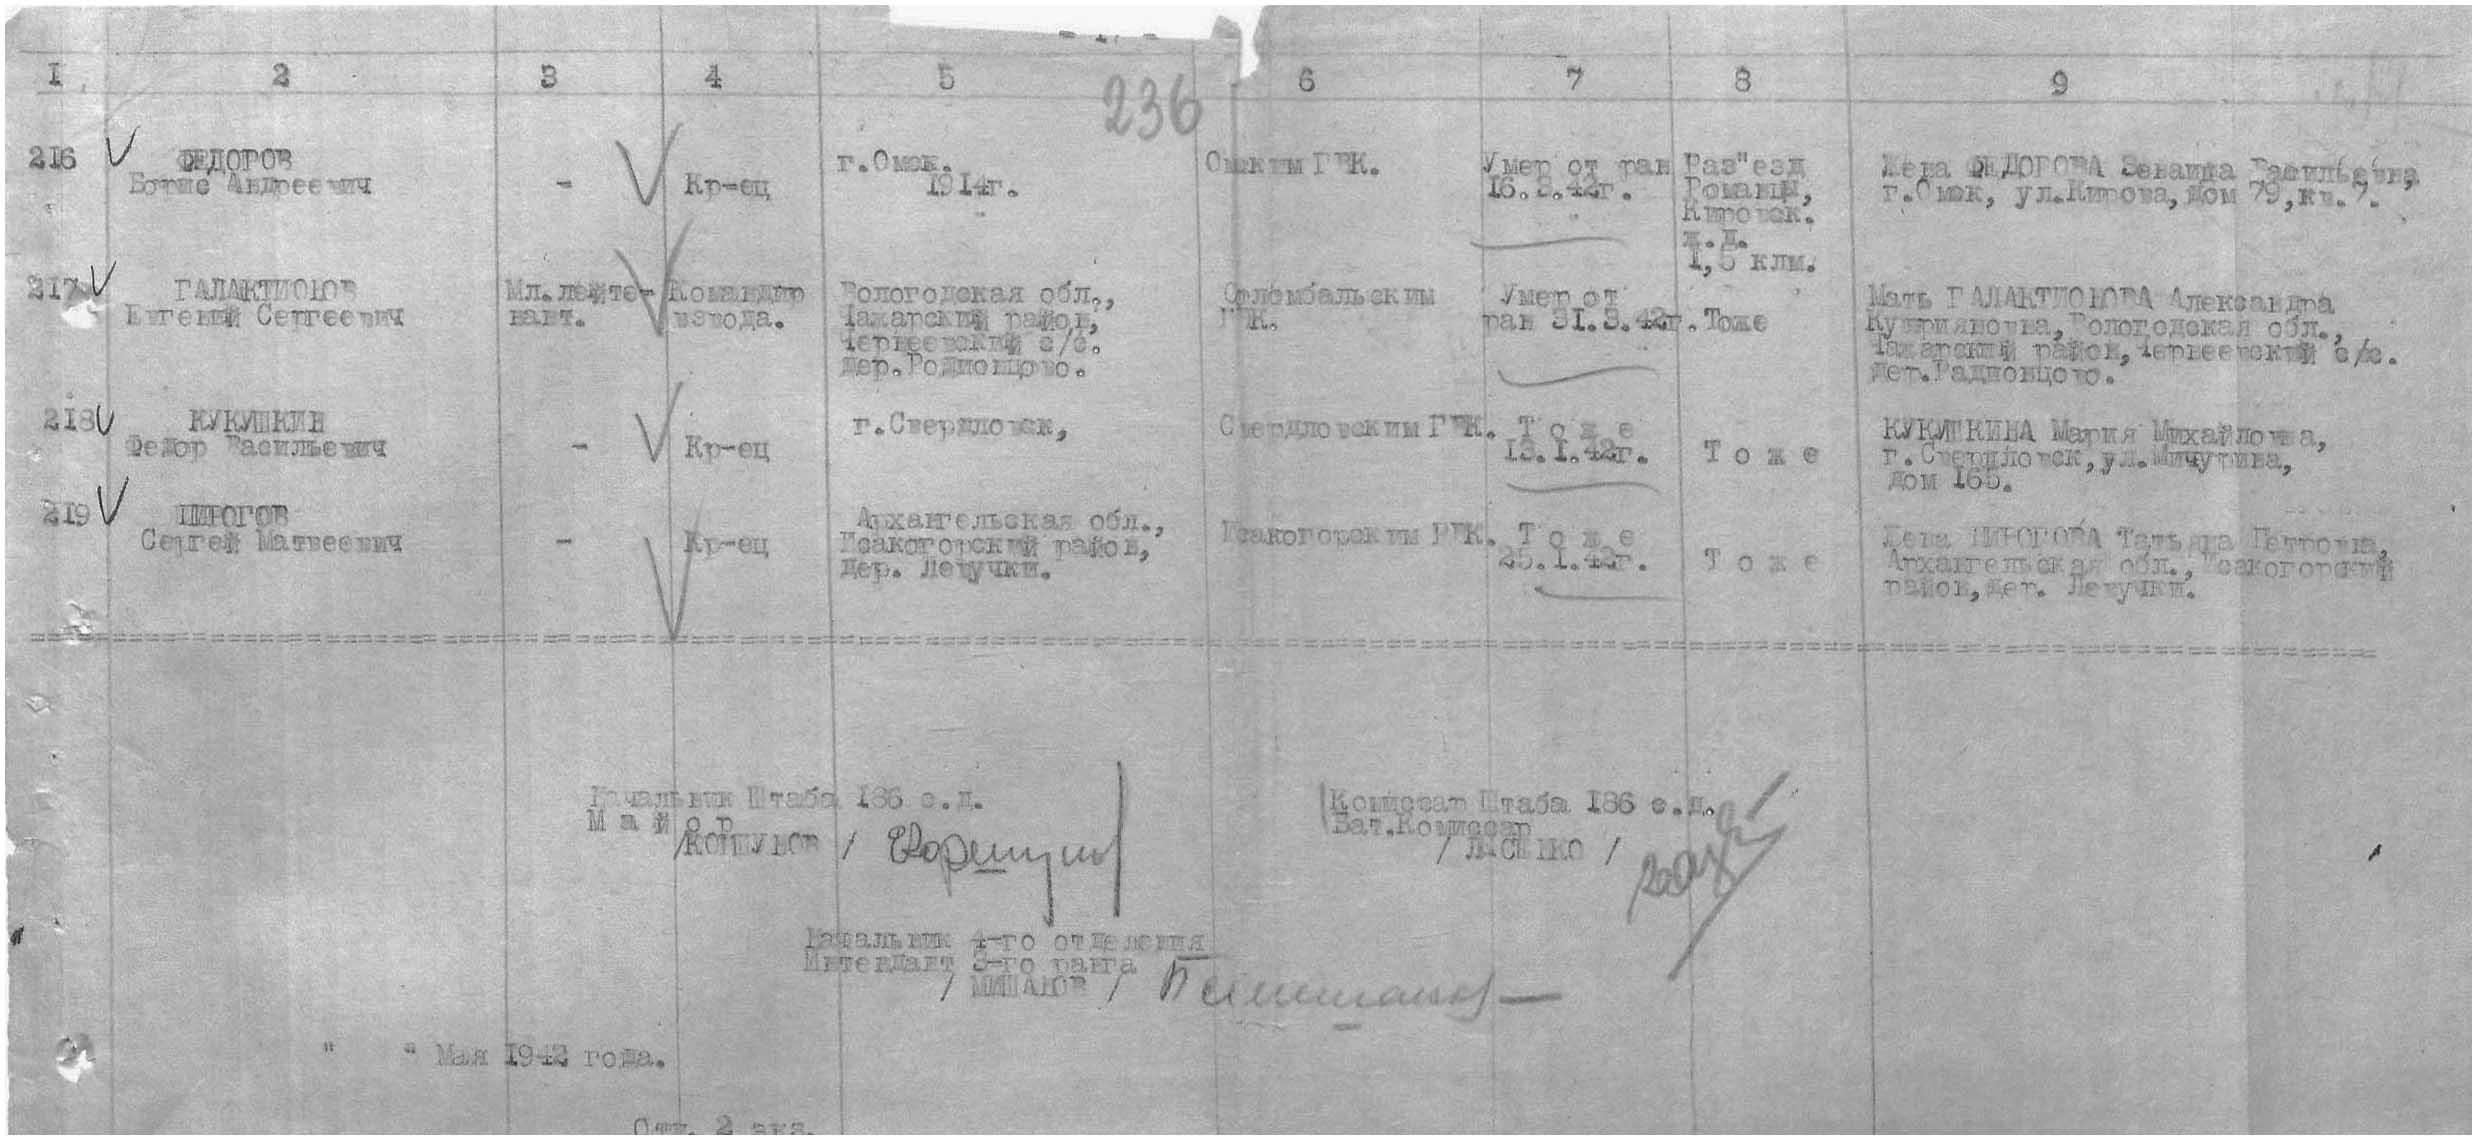 1 2 3 4 5 6 7 8 9
236
216 ФЕДОРОВ Борис Андреевич - Кр-ец г.Омск. 1914г. Омским ГВК. Умер от ран 16.3.42г. Раз"езд Романцы, Кировск. ж.д. 1,5 клм. Жена ФЕДОРОВА Зенаида Васильевна, г.Омск, ул.Кирова, дом 79, кв.7.
217 ГАЛАКТИОНОВ Евгений Сергеевич Мл.лейтенант. Командир взвода. Вологодская обл., Чажарский район, Чернеевский с/с. дер.Родионцово. Соломбальским ГВК. Умер от ран 31.3.42г. Тоже Мать ГАЛАКТИОНОВА Александра Куприяновна, Вологодская обл., Чажарский район, Чернеевский с/с. дер.Радионцово.
218 КУКУШКИН Федор Васильевич - Кр-ец г.Свердловск, Свердловским ГВК. Тоже 13.1.42г. Тоже КУКУШКИНА Мария Михайловна, г.Свердловск, ул.Мичурина, дом 165.
219 ПИРОГОВ Сергей Матвеевич - Кр-ец Архангельская обл., Исакогорский район, дер. Левучки. Исакогорским РВК. Тоже 25.1.42г. Тоже Жена ПИРОГОВА Татьяна Петровна, Архангельская обл., Исакогорский район, дер. Левучки.
Начальник Штаба 186 с.д.
Майор
/КОРШУНОВ /
Комиссар Штаба 186 с.д.
Бат.Комиссар
/ ЛЫСЕНКО /
Начальник 4-го отделения
Интендант 3-го ранга
/ МИШАНОВ /
" " Мая 1942 года.
Отп. 2 экз.